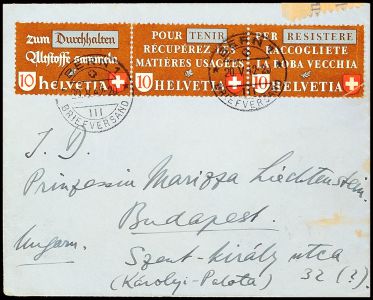 zum Durchhalten
Altstoffe sammeln
10 HELVETIA
POUR TENIR
RÉCUPÉREZ LES
MATIÈRES USAGÉES
10 HELVETIA
PER RESISTERE
RACCOGLIETE
LA ROBA VECCHIA
10 HELVETIA
III
BRIEFVERSAND
BRIEFVERSAND
I. D.
Prinzessin Marizza Liechtenstein.
Budapest.
Ungarn.
Szent-király utca
(Károlyi-Palota) 32 (?).